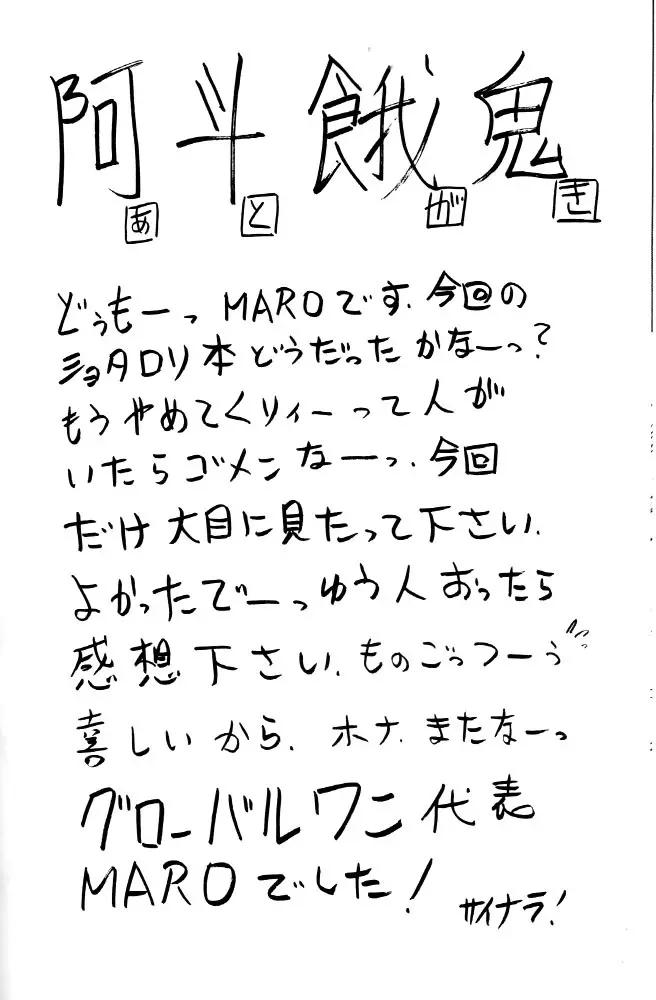 阿斗餓鬼
あとがき
どぅもーっ MAROです.今回の
ショタロリ本どうだったかなーっ?
もうやめてくりぃーって人が
いたらゴメンなーっ.今回
だけ大目に見たって下さい.
よかったでーっゆう人おったら
感想下さい.ものごっつーぅ
喜しいから.ホナ.またなーっ
グローバルワン代表
MAROでした!
サイナラ!